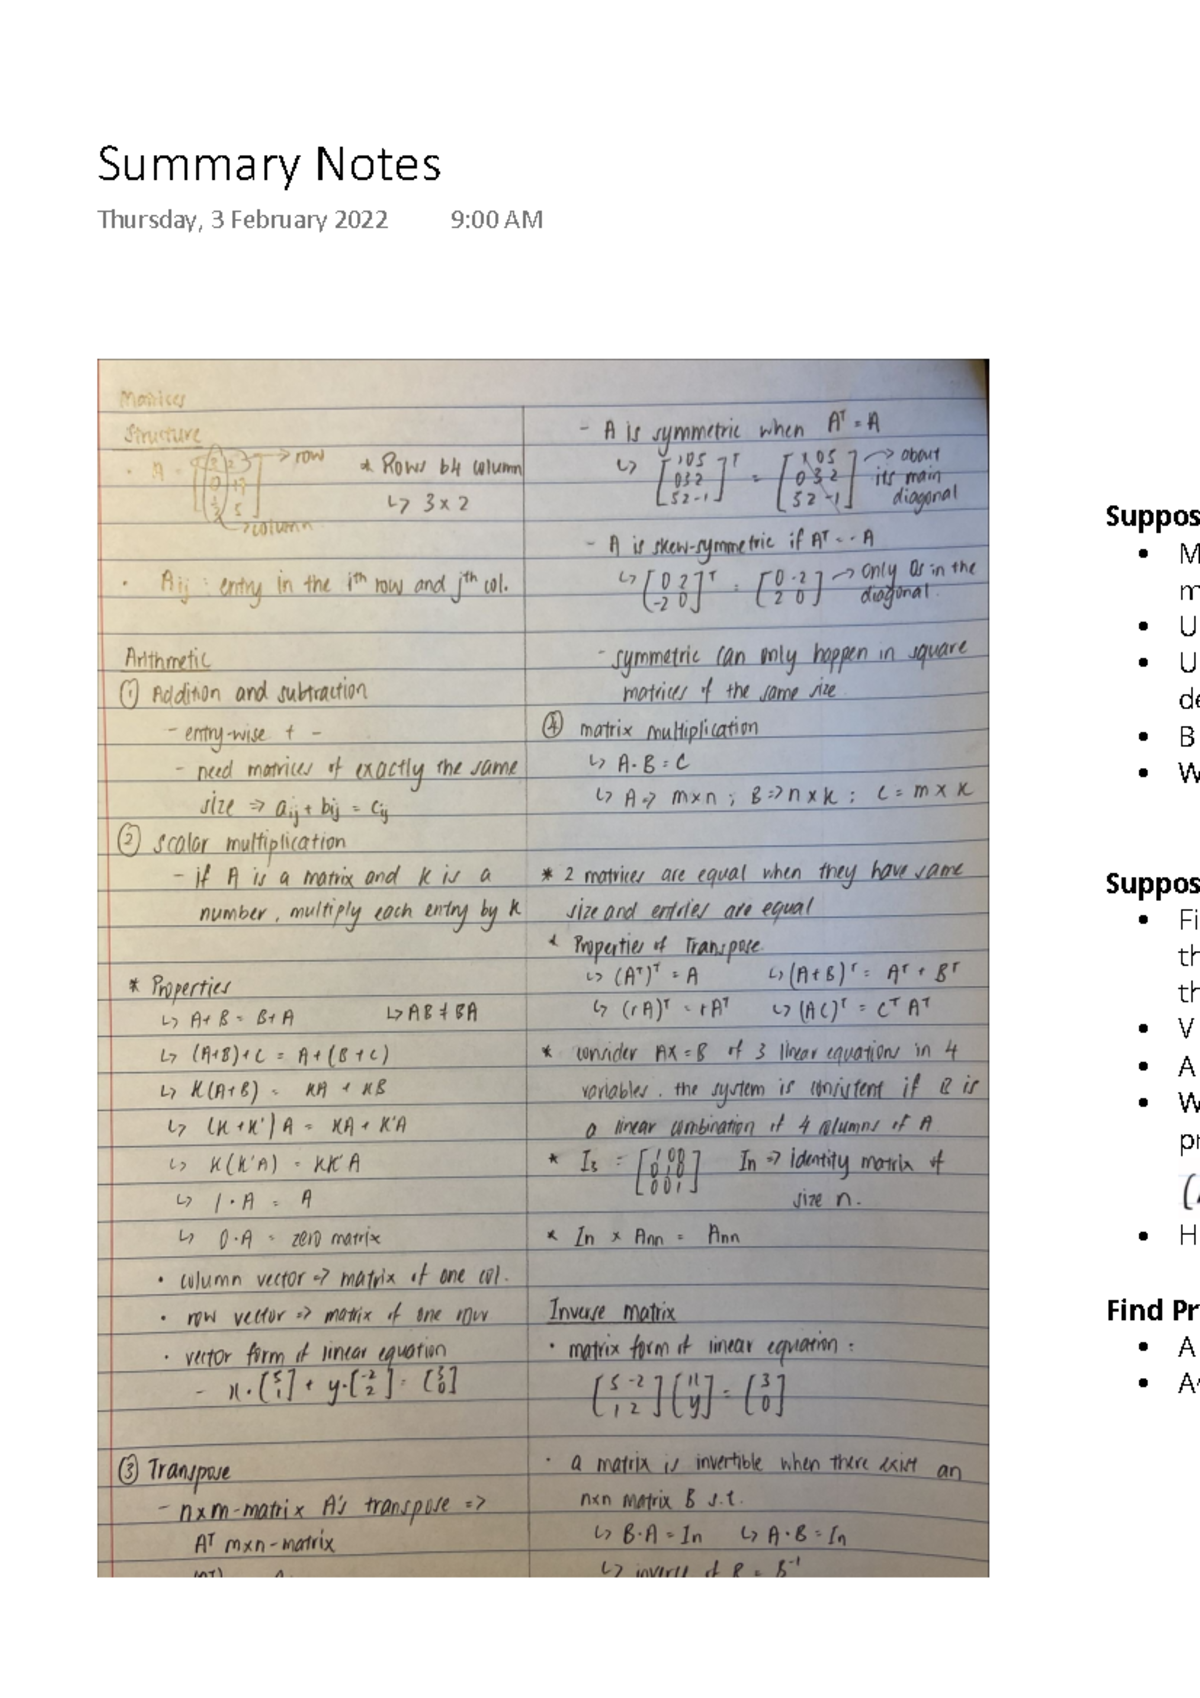 Summary Notes
Thursday, 3 February 2022 9:00 AM
Matrices
Structure
→ row
* Rows b4 column
↳ 3 x 2
→ column
• Aij : entry in the ith row and jth col.
Arithmetic
① Addition and subtraction
- entry-wise + -
- need matrices of exactly the same
size ⇒ aij + bij = cij
② scalar multiplication
- if A is a matrix and K is a
number, multiply each entry by K
* Properties
↳ A+B = B+A ↳ AB ≠ BA
↳ (A+B)+C = A+(B+C)
↳ K(A+B) = KA + KB
↳ (K+K')A = KA + K'A
↳ K(K'A) = KK'A
↳ 1·A = A
↳ 0·A = zero matrix
• column vector ⇒ matrix of one col.
• row vector ⇒ matrix of one row
• vector form of linear equation
- x·[5 1] + y·[-2 2] = [3 0]
③ Transpose
- nxm-matrix A's transpose ⇒
Aᵀ mxn-matrix
- A is symmetric when Aᵀ = A
↳ [1 0 5
0 3 2
5 2 -1]ᵀ = [1 0 5
0 3 2
5 2 -1] → about
its main
diagonal
- A is skew-symmetric if Aᵀ = -A
↳ [0 2
-2 0]ᵀ = [0 -2
2 0] → only 0s in the
diagonal
- symmetric can only happen in square
matrices of the same size
④ matrix multiplication
↳ A·B = C
↳ A ⇒ mxn ; B ⇒ nxk ; C = mxk
* 2 matrices are equal when they have same
size and entries are equal
* Properties of Transpose
↳ (Aᵀ)ᵀ = A ↳ (A+B)ᵀ = Aᵀ + Bᵀ
↳ (rA)ᵀ = rAᵀ ↳ (AC)ᵀ = Cᵀ Aᵀ
* consider AX=B of 3 linear equations in 4
variables. the system is consistent if B is
a linear combination of 4 columns of A
* I₃ = [1 0 0
0 1 0
0 0 1] In ⇒ identity matrix of
size n.
* In x Ann = Ann
Inverse matrix
• matrix form of linear equation :
[5 -2
1 2][x
y] = [3
0]
• a matrix is invertible when there exist an
nxn matrix B s.t.
↳ B·A = In ↳ A·B = In
↳ inverse of B = B⁻¹
Suppos
• M
m
• U
• U
de
• B
• W
Suppos
• Fi
th
th
• V
• A
• W
pr
• H
Find Pr
• A
• A^